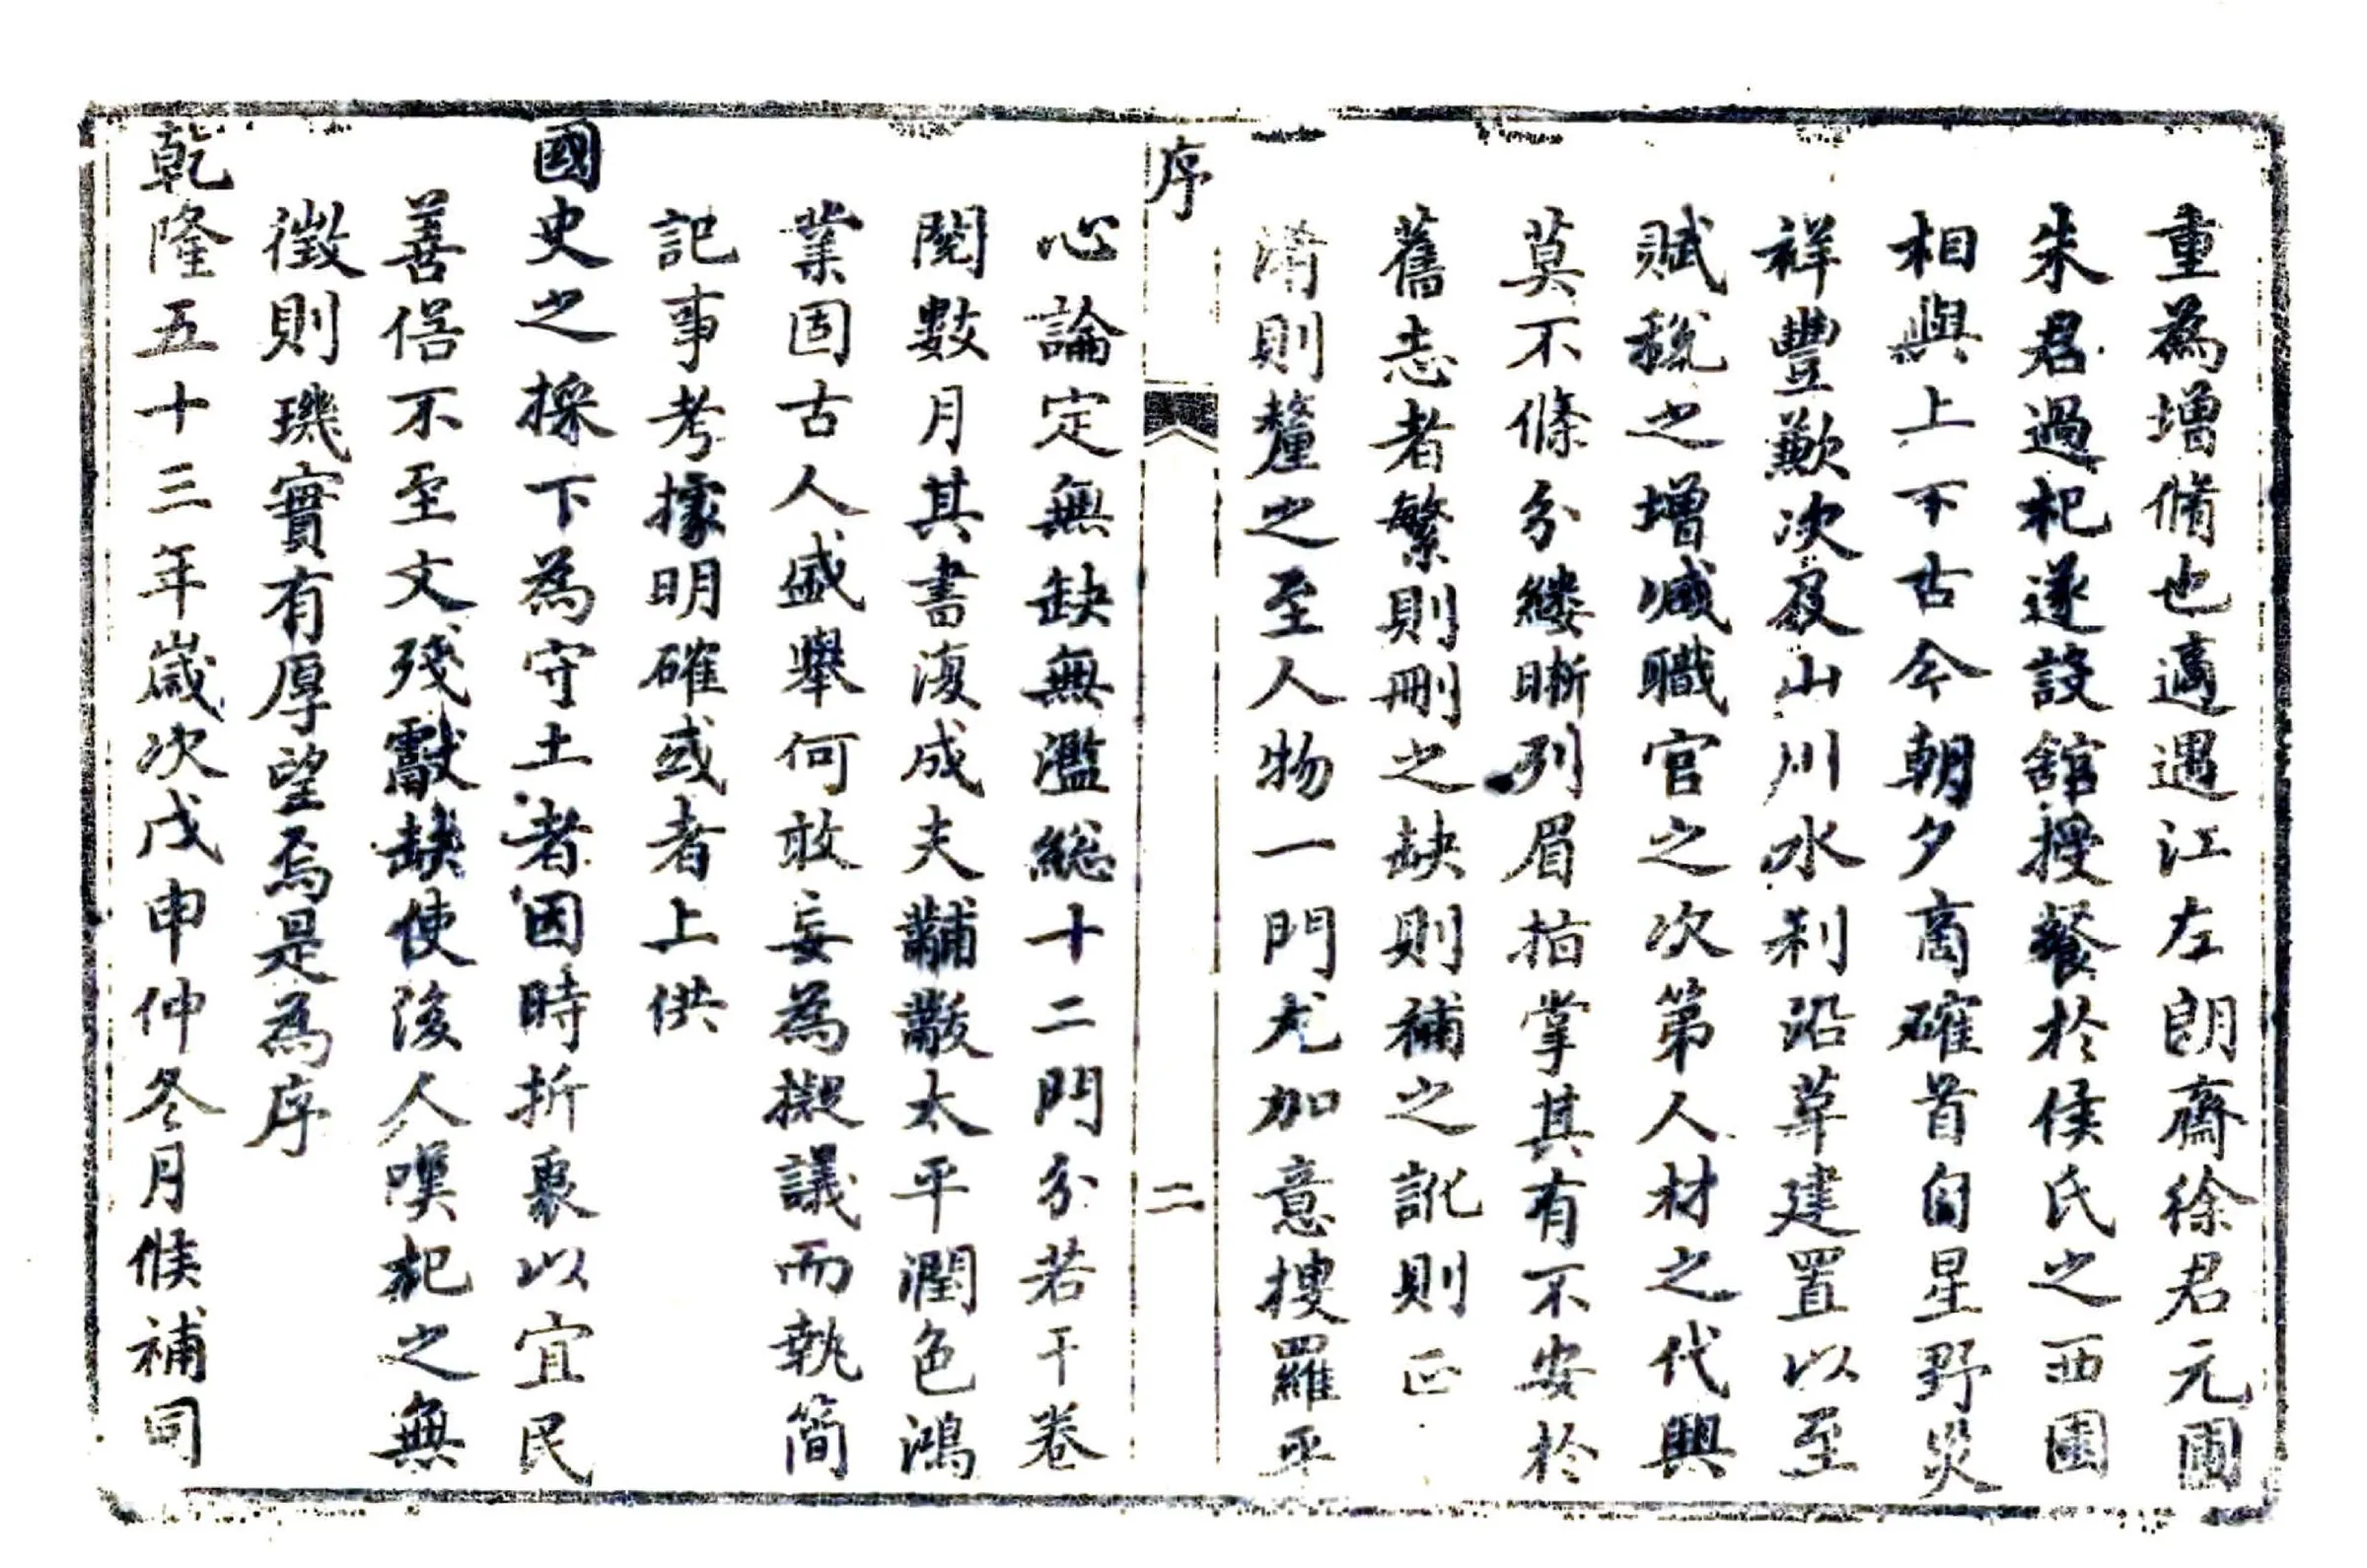 重為增脩也適遇江左朗齋徐君元圃
朱君過杞遂設舘授餐於侯氏之西園
相與上下古今朝夕商確首自星野災
祥豐歉次及山川水利沿革建置以至
賦稅之增減職官之次第人材之代興
莫不條分縷晰列眉指掌其有不安於
舊志者繁則刪之缺則補之訛則正
淆則釐之至人物一門尤加意搜羅平
序
二
心論定無缺無濫總十二門分若干卷
閱數月其書復成夫黼黻太平潤色鴻
業固古人盛舉何敢妄為擬議而執簡
記事考據明確或者上供
國史之採下為守土者因時折衷以宜民
善俗不至文殘獻缺使後人嘆杞之無
徵則璣實有厚望焉是為序
乾隆五十三年歲次戊申仲冬月候補同